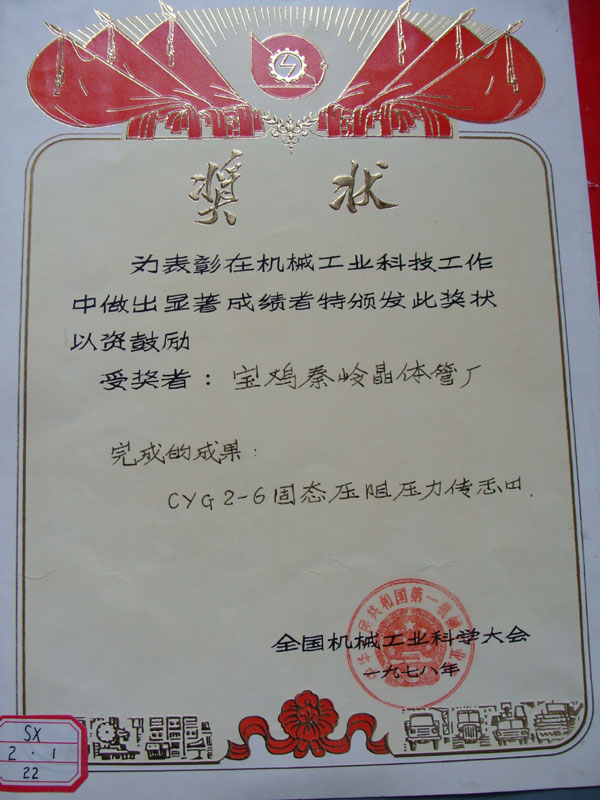 奖状
为表彰在机械工业科技工作
中做出显著成绩者特颁发此奖状
以资鼓励
受奖者：宝鸡秦岭晶体管厂
完成的成果：
CYG2-6固态压阻压力传感口.
全国机械工业科学大会
一九七八年
SX
2·1
22